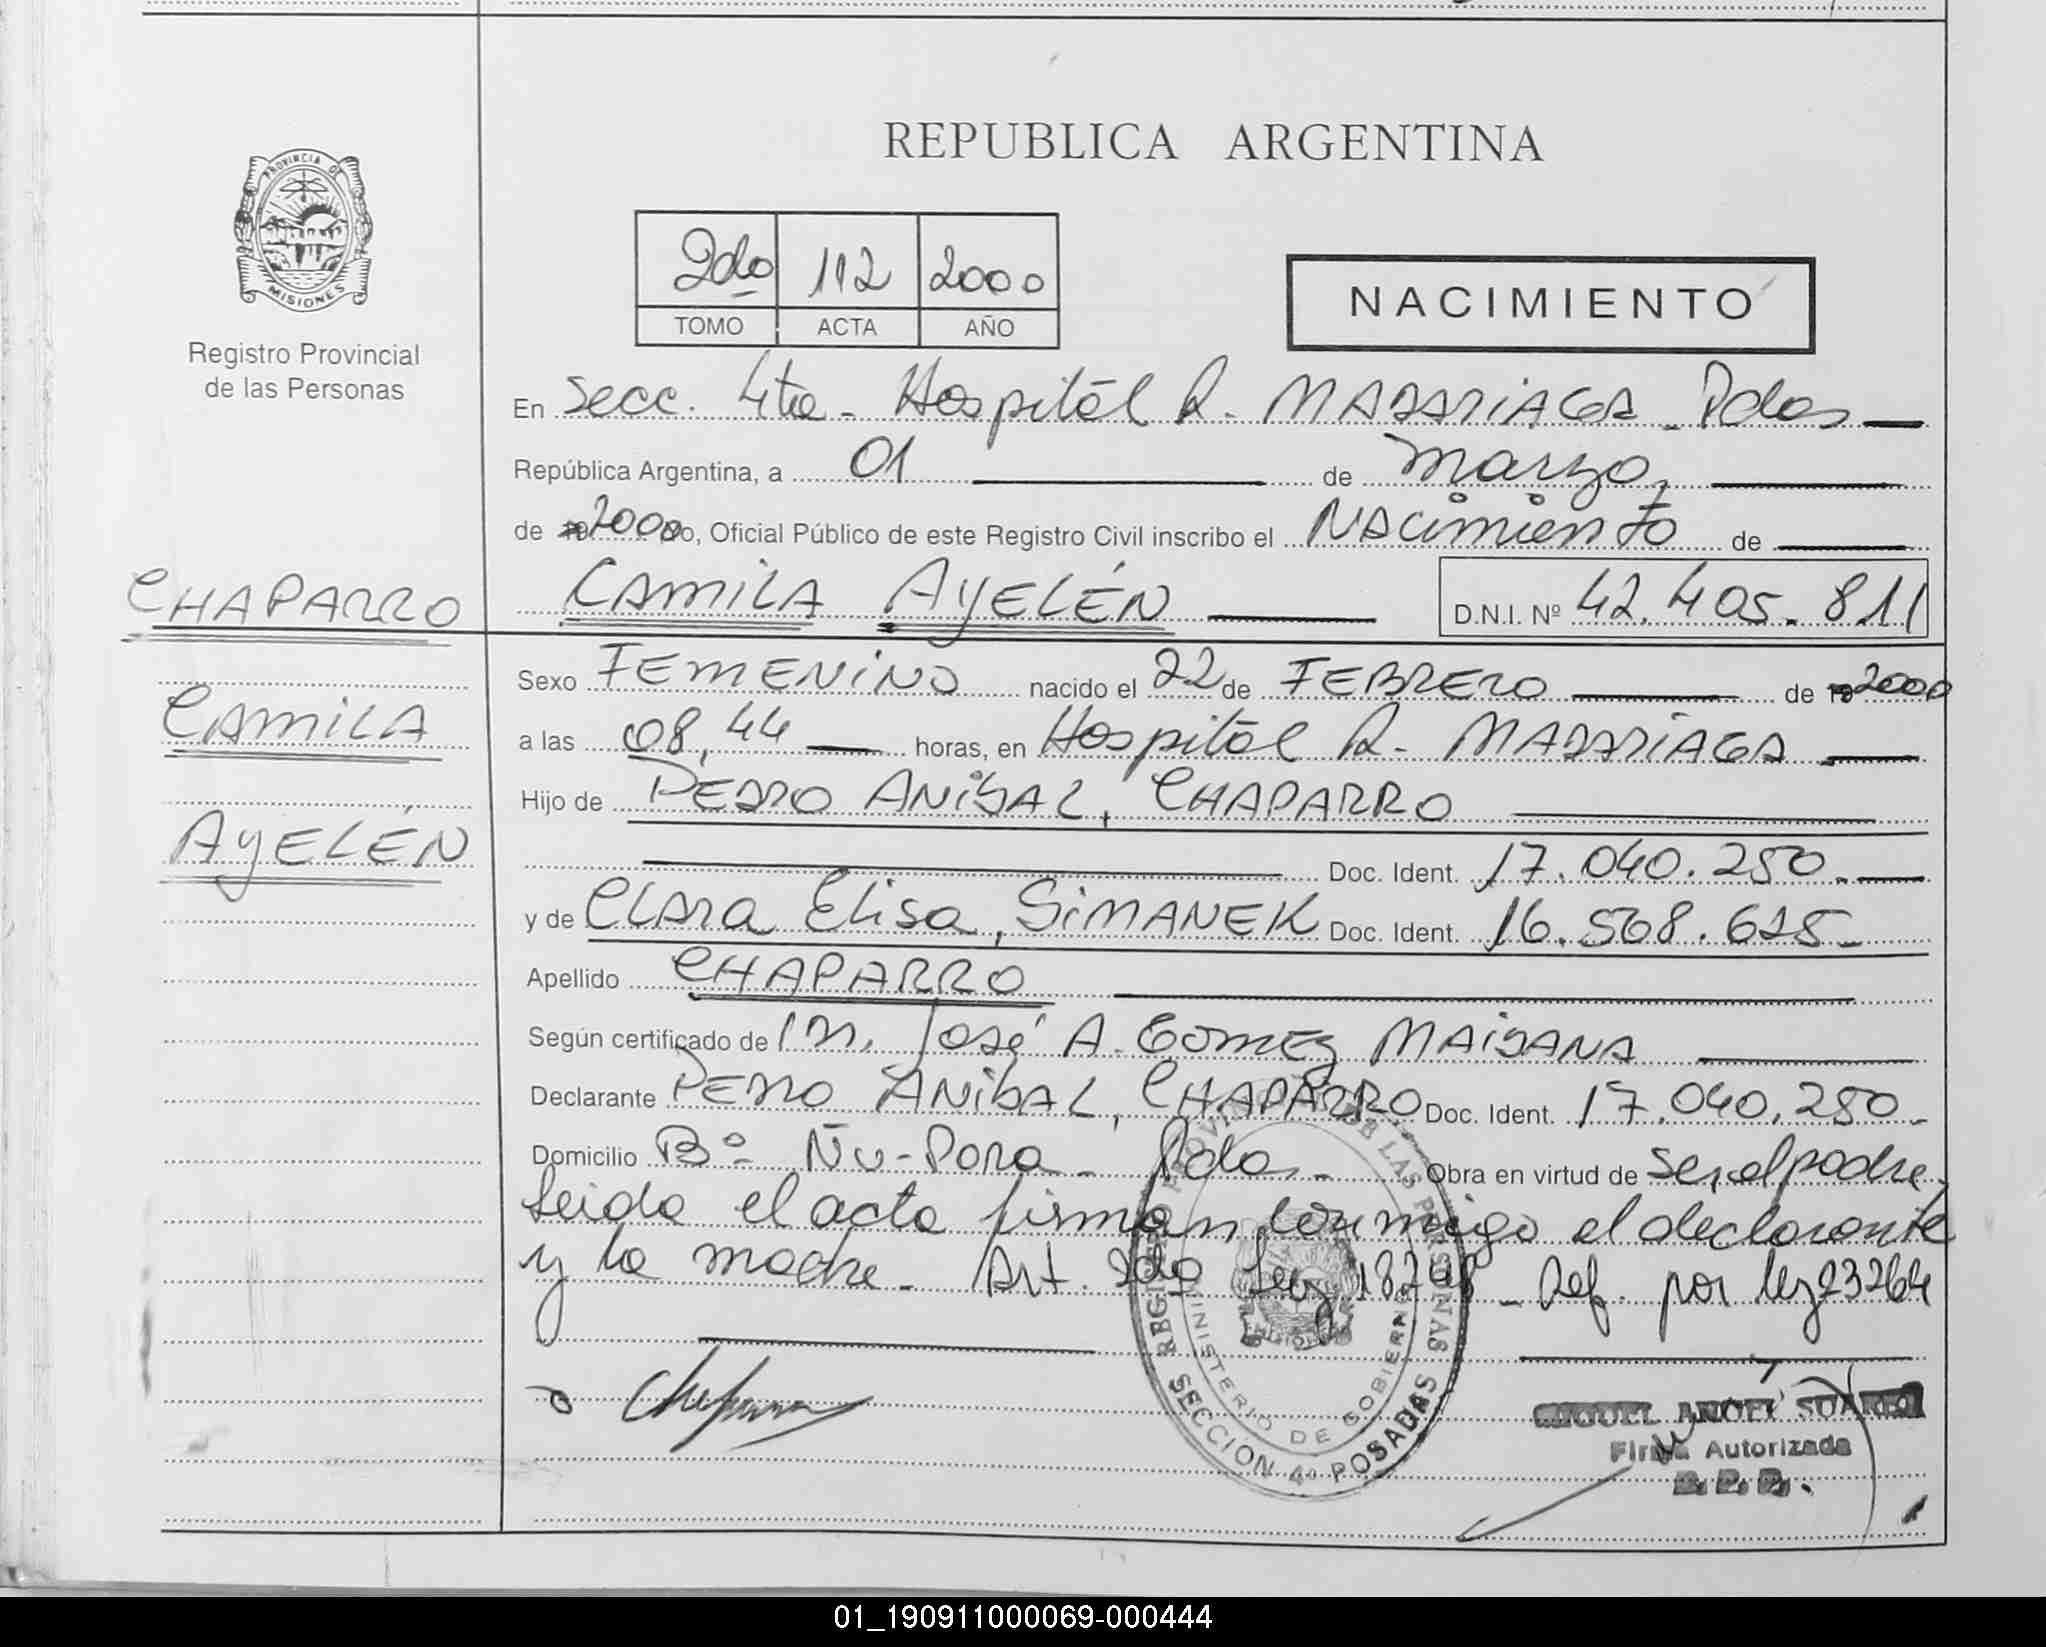 REPUBLICA ARGENTINA
PROVINCIA DE
MISIONES
Registro Provincial
de las Personas
2do 112 2000
TOMO ACTA AÑO
NACIMIENTO
En Secc. 4ta - Hospital R. MADARIAGA - Pdas
República Argentina, a 01 de marzo,
de 2000 Yo, Oficial Público de este Registro Civil inscribo el NACimienTo de
CHAPARRO
CAMILA AYELÉN D.N.I. Nº 42.405.811
Sexo FEMENINO nacido el 22 de FEBRERO de 19 2000
CAMILA
a las 08,44 horas, en Hospital R. MADARIAGA
Hijo de PEDRO ANIBAL, CHAPARRO
AYELÉN
Doc. Ident. 17.040.250.
y de CLARA Elisa, SIMANEK Doc. Ident. 16.568.625-
Apellido CHAPARRO
Según certificado de José A. GOMEZ MAIDANA
Declarante PEDRO ANIBAL, CHAPARRO Doc. Ident. 17.040.250-
Domicilio Bº Ñu-Pora - Pdas - Obra en virtud de ser el padre,
Leida el acta firman conmigo el declarante
y la madre - Art. 2do Ley 18248 - Ref. por ley 23264
REGISTRO PROVINCIAL DE LAS PERSONAS
MINISTERIO DE GOBIERNO
SECCION 4º POSADAS
MIGUEL ANGEL SUAREZ
Firma Autorizada
R. P. P.
01_190911000069-000444